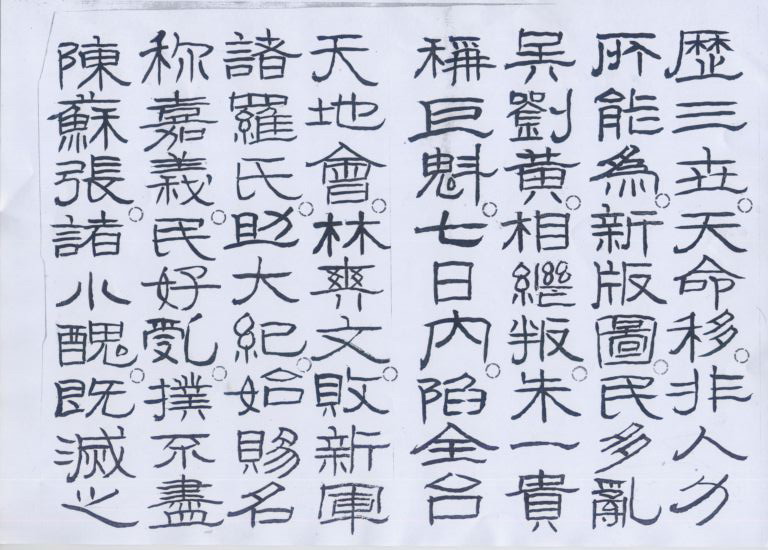 歷三世天命移非人力
所能為新版圖民多亂
吳劉黃相繼叛朱一貴
稱巨魁七日內陷全台
天地會林爽文敗新軍
諸羅氏助大紀始賜名
称嘉義民好亂撲不盡
陳蘇張諸小醜既滅之